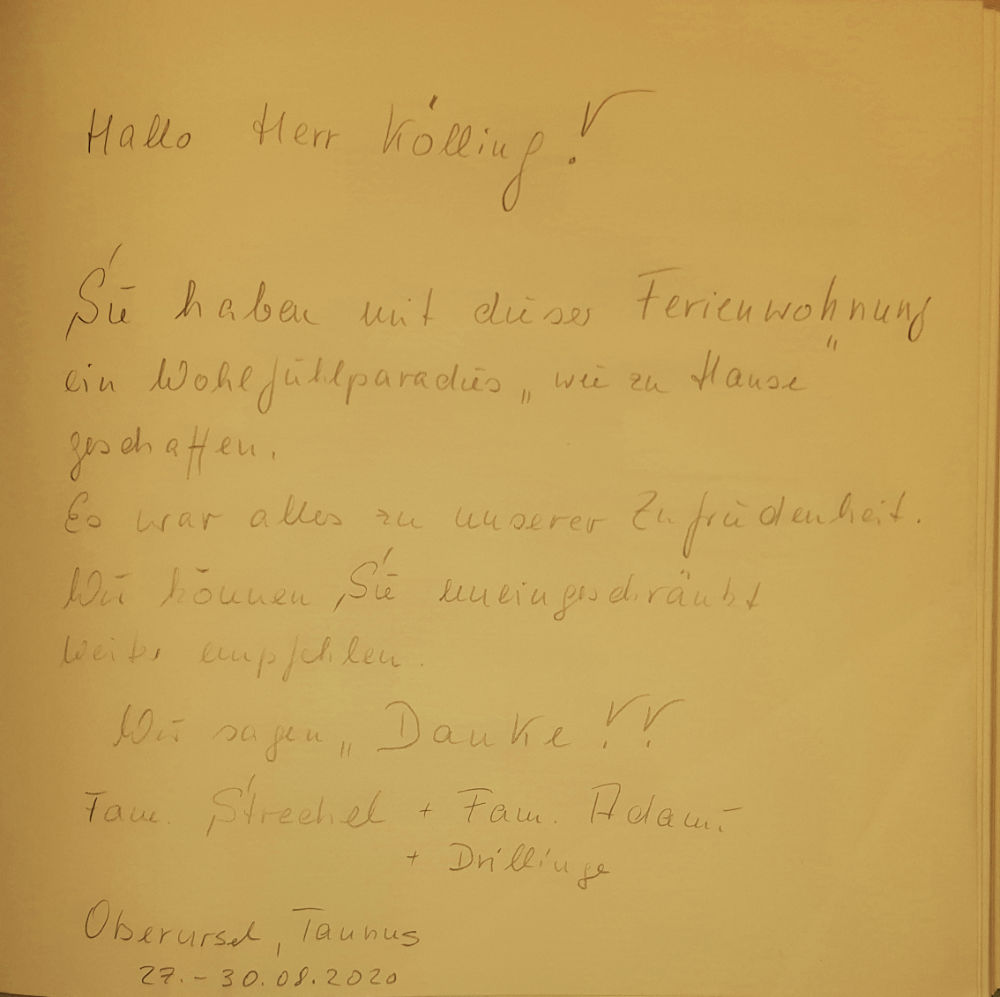 Hallo Herr Kölling!
Sie haben mit dieser Ferienwohnung
ein Wohlfühlparadies „wie zu Hause"
geschaffen.
Es war alles zu unserer Zufriedenheit.
Wir können Sie uneingeschränkt
weiter empfehlen.
Wir sagen „Danke!!
Fam. Strechel + Fam. Adami
+ Drillinge
Oberursel, Taunus
27.-30.08.2020